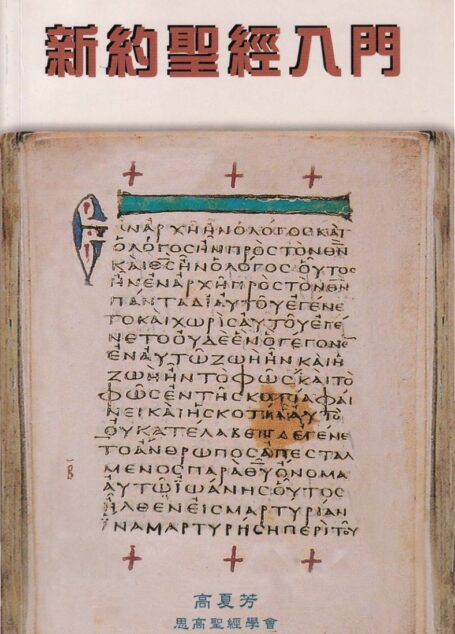 新約聖經入門
ЄΝΑΡΧΗΗΝΟΛΟΓΟΣΚΑΙ
ΟΛΟΓΟϹΗΝΠΡΟϹΤΟΝΘΝ
ΚΑΙΘϹΗΝΟΛΟΓΟϹΟΥΤΟϹ
ΗΝΕΝΑΡΧΗΠΡΟϹΤΟΝΘΝ
ΠΑΝΤΑΔΙΑΥΤΟΥΕΓΕΝΕ
ΤΟΚΑΙΧΩΡΙϹΑΥΤΟΥΕΓΕ
ΝΕΤΟΟΥΔΕΕΝΟΓΕΓΟΝΕ
ΕΝΑΥΤΩΖΩΗΗΝΚΑΙΗ
ΖΩΗΗΝΤΟΦΩϹΚΑΙΤΟ
ΦΩϹΕΝΤΗϹΚΟΤΙΑΦΑΙ
ΝΕΙΚΑΙΗϹΚΟΤΙΑΑΥΤΟ
ΟΥΚΑΤΕΛΑΒΕΝΕΓΕΝΕ
ΤΟΑΝΘΡΩΠΟϹΑΠΕϹΤΑΛ
ΜΕΝΟϹΠΑΡΑΘΥΟΝΟΜΑ
ΑΥΤΩΙΩΑΝΗϹΟΥΤΟϹ
ΗΛΘΕΝΕΙϹΜΑΡΤΥΡΙΑΝ
ΙΝΑΜΑΡΤΥΡΗϹΗΠΕΡΙΤΟΥ
高夏芳
思高聖經學會